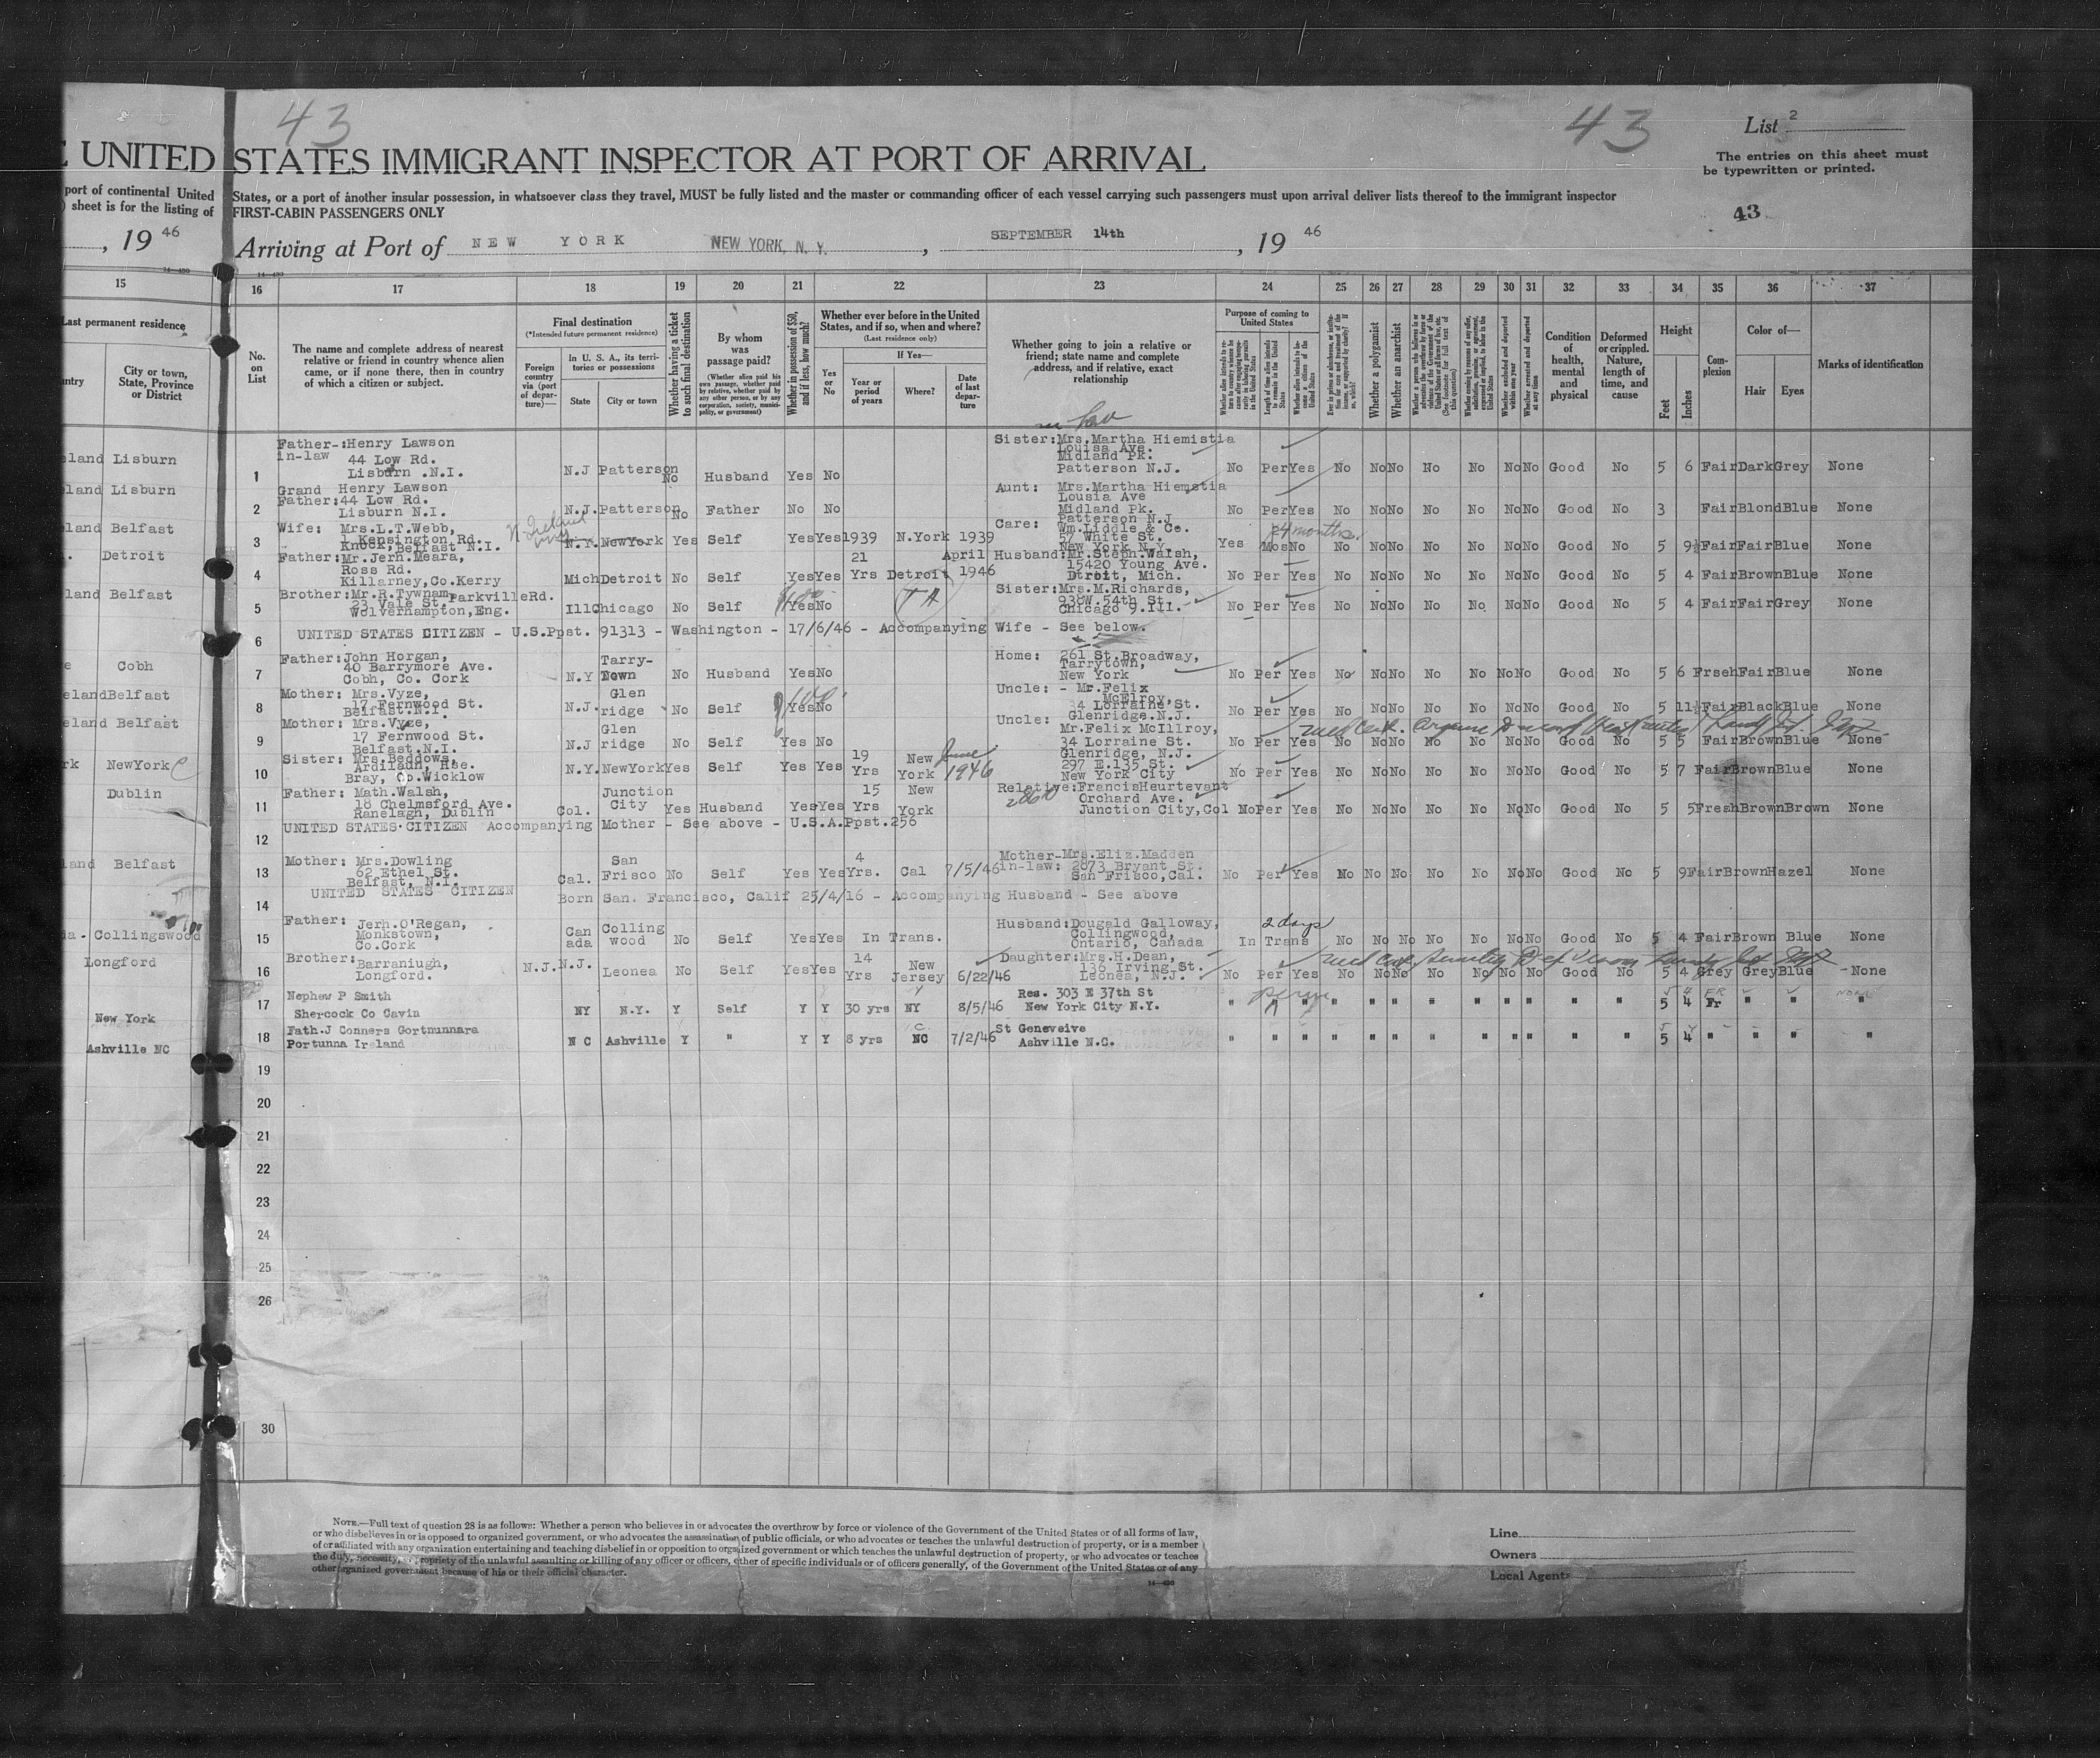 43
43
List 2
The entries on this sheet must
be typewritten or printed.
43
UNITED STATES IMMIGRANT INSPECTOR AT PORT OF ARRIVAL
port of continental United
sheet is for the listing of
States, or a port of another insular possession, in whatsoever class they travel, MUST be fully listed and the master or commanding officer of each vessel carrying such passengers must upon arrival deliver lists thereof to the immigrant inspector
FIRST-CABIN PASSENGERS ONLY
, 19 46
Arriving at Port of NEW YORK NEW YORK, N. Y. , SEPTEMBER 14th , 19 46
15 16 17 18 19 20 21 22 23 24 25 26 27 28 29 30 31 32 33 34 35 36 37
Last permanent residence
City or town, State, Province or District
No. on List
The name and complete address of nearest relative or friend in country whence alien came, or if none there, then in country of which a citizen or subject.
Final destination
(*Intended future permanent residence)
Foreign country via (port of departure)—
In U. S. A., its territories or possessions
State
City or town
Whether having a ticket to such final destination
By whom was passage paid?
(Whether alien paid his own passage, whether paid by relative, whether paid by any other person, or by any corporation, society, municipality, or government)
Whether in possession of $50, and if less, how much?
Whether ever before in the United States, and if so, when and where?
(Last residence only)
Yes or No
If Yes—
Year or period of years
Where?
Date of last departure
Whether going to join a relative or friend; state name and complete address, and if relative, exact relationship
Purpose of coming to United States
Whether a polygamist
Whether an anarchist
Condition of health, mental and physical
Deformed or crippled. Nature, length of time, and cause
Height
Feet
Inches
Complexion
Color of—
Hair
Eyes
Marks of identification
in law
eland Lisburn
1 Father-in-law: Henry Lawson 44 Low Rd. Lisburn .N.I. N.J Patterson No Husband Yes No Sister: Mrs.Martha Hiemistia Louisa Ave. Midland Pk. Patterson N.J. No Per Yes No No No No No No No Good No 5 6 Fair Dark Grey None
eland Lisburn
2 Grand Father: Henry Lawson 44 Low Rd. Lisburn N.I. N.J. Patterson No Father No No Aunt: Mrs.Martha Hiemstia Lousia Ave Midland Pk. Patterson N.J No Per Yes No No No No No No No Good No 3 Fair Blond Blue None
eland Belfast
3 Wife: Mrs.L.T.Webb, 1 Kensington Rd. Knock, Belfast N.I. N. Ireland N.Y. NewYork Yes Self Yes Yes 1939 N.York 1939 Care: Wm.Liddle & Co. 57 White St. New York N.Y. Yes Mos No 4 months. No No No No No No No Good No 5 9½ Fair Fair Blue None
Detroit
4 Father: Mr.Jerh.Meara, Ross Rd. Killarney, Co.Kerry Mich Detroit No Self Yes Yes 21 Yrs Detroit April 1946 Husband: Mr.Steph.Walsh, 15420 Young Ave. Dtroit, Mich. No Per Yes No No No No No No No Good No 5 4 Fair Brown Blue None
eland Belfast
5 Brother: Mr.R.Tywnam, 23 Vale St. ParkvilleRd. Wolverhampton, Eng. Ill Chicago No Self Yes No Sister: Mrs.M.Richards, 938W.54th St. Chicago 9.Ill. No Per Yes No No No No No No No Good No 5 4 Fair Fair Grey None
6 UNITED STATES CITIZEN - U.S.Ppst. 91313 - Washington - 17/6/46 - Accompanying Wife - See below.
Cobh
7 Father: John Horgan, 40 Barrymore Ave. Cobh, Co. Cork N.Y Tarry-Town No Husband Yes No Home: 261 St.Broadway, Tarrytown, New York No Per Yes No No No No No No No Good No 5 6 Frseh Fair Blue None
eland Belfast
8 Mother: Mrs.Vyze, 17 Fernwood St. Belfast.N.I. N.J. Glen ridge No Self Yes No Uncle: - Mr.Felix McElroy, 34 Lorraine St. Glenridge.N.J. No Per Yes No No No No No No No Good No 5 11½ Fair Black Blue None
eland Belfast
9 Mother: Mrs.Vyze, 17 Fernwood St. Belfast.N.I. N.J Glen ridge No Self Yes No Uncle: Mr.Felix McIllroy, 34 Lorraine St. Glenridge, N.J. No Per Yes No No No No No No No Good No 5 5 Fair Brown Blue None
NewYork
10 Sister: Mrs.Beddows, Ardilaun, Hse. Bray, Co.Wicklow N.Y. NewYork Yes Self Yes Yes 19 Yrs New York June 1946 297 E.135 St. New York City No Per Yes No No No No No No No Good No 5 7 Fair Brown Blue None
Dublin
11 Father: Math.Walsh, 18 Chelmsford Ave. Ranelagh, Dublin Col. Junction City Yes Husband Yes Yes 15 Yrs New York Relative: Francis Heurtevant Orchard Ave. Junction City, Col No Per Yes No No No No No No No Good No 5 5 Fresh Brown Brown None
12 UNITED STATES CITIZEN Accompanying Mother - See above - U.S.A.Ppst.256
land Belfast
13 Mother: Mrs.Dowling 62 Ethel St. Belfast, N.I. Cal. San Frisco No Self Yes Yes 4 Yrs. Cal 7/5/46 Mother-in-law: Mrs.Eliz.Madden 2873 Bryant St. San Frisco, Cal. No Per Yes No No No No No No No Good No 5 9 Fair Brown Hazel None
14 UNITED STATES CITIZEN Born San. Francisco, Calif 25/4/16 - Accompanying Husband - See above
Collingswood
15 Father: Jerh.O'Regan, Monkstown, Co.Cork Can ada Colling wood No Self Yes Yes In Trans. Husband: Dougald Galloway, Collingwood, Ontario, Canada In Trans 2 days No No No No No No No Good No 5 4 Fair Brown Blue None
Longford
16 Brother: Barraniugh, Longford. N.J. N.J. Leonea No Self Yes Yes 14 Yrs New Jersey 6/22/46 Daughter: Mrs.H.Dean, 136 Irving St. Leonea, N.J. No Per Yes No No No No No No No Good No 5 4 Grey Grey Blue None
New York
17 Nephew P Smith Shercock Co Cavin NY N.Y. Y Self Y Y 30 yrs NY 8/5/46 Res. 303 E 37th St New York City N.Y. " perm " " " " " " " " " " " 5 4 Fr " " "
Ashville NC
18 Fath.J Conners Gortnunnara Portunna Ireland N C Ashville Y " Y Y 8 yrs NC 7/2/46 St Geneveive Ashville N.C. " " " " " " " " " " " " 5 4 " " " "
19
20
21
22
23
24
25
26
30
NOTE.—Full text of question 28 is as follows: Whether a person who believes in or advocates the overthrow by force or violence of the Government of the United States or of all forms of law,
or who disbelieves in or is opposed to organized government, or who advocates the assassination of public officials, or who advocates or teaches the unlawful destruction of property, or is a member
of or affiliated with any organization entertaining and teaching disbelief in or opposition to organized government or which teaches the unlawful destruction of property, or who advocates or teaches
the duty, necessity, or propriety of the unlawful assaulting or killing of any officer or officers, either of specific individuals or of officers generally, of the Government of the United States or of any
other organized government because of his or their official character.
Line
Owners
Local Agents